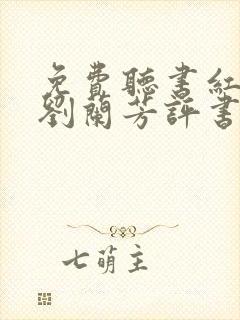 免費聽書紅
劉蘭芳評書
七萌主